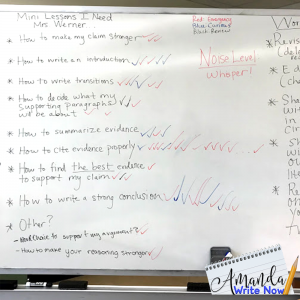 Mini Lessons I Need
Mrs Werner
* How to make my claim stronger
* How to write an introduction
* How to write transitions
* How to decide what my
supporting paragraphs
will be about
* How to summarize evidence
* How to cite evidence properly
* How to find the best evidence
to support my claim
* How to write a strong conclusion
* Other?
to support my argument?
- How to make your reasoning stronger
Red: Emergency
Noise Level
Whisper!
* Revis
* E d
* Sh
Amanda
Write Now